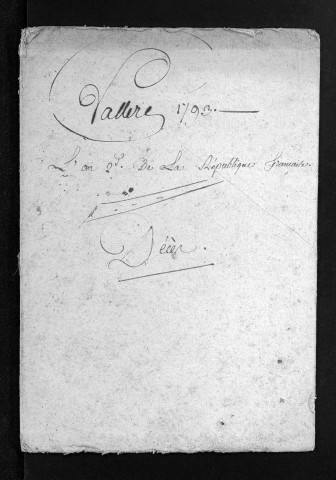 Vallere 1793.
L'an 2d. De La République française
Décès.